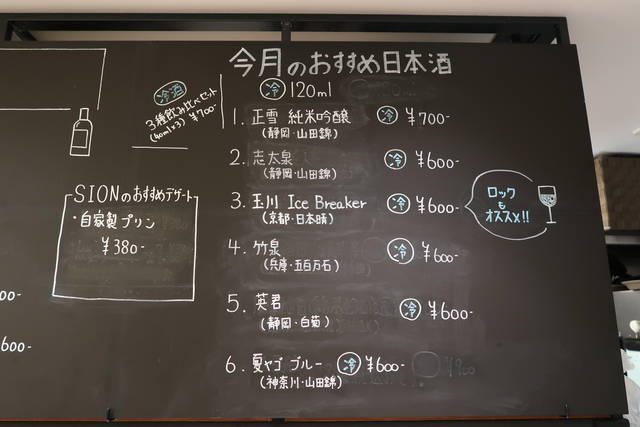 今月のおすすめ日本酒
冷 120ml
1. 正雪 純米吟醸 冷 ¥700-
(静岡・山田錦)
2. 志太泉 冷 ¥600-
(静岡・山田錦)
3. 玉川 Ice Breaker 冷 ¥600-
(京都・日本晴)
ロック
も
オススメ!!
4. 竹泉 冷 ¥600-
(兵庫・五百万石)
5. 英君 冷 ¥600-
(静岡・白菊)
6. 夏ヤゴ ブルー 冷 ¥600-
(神奈川・山田錦)
冷酒
3種飲み比べセット
(40ml×3) ¥700-
SIONのおすすめデザート
・自家製プリン
¥380-
00-
600-